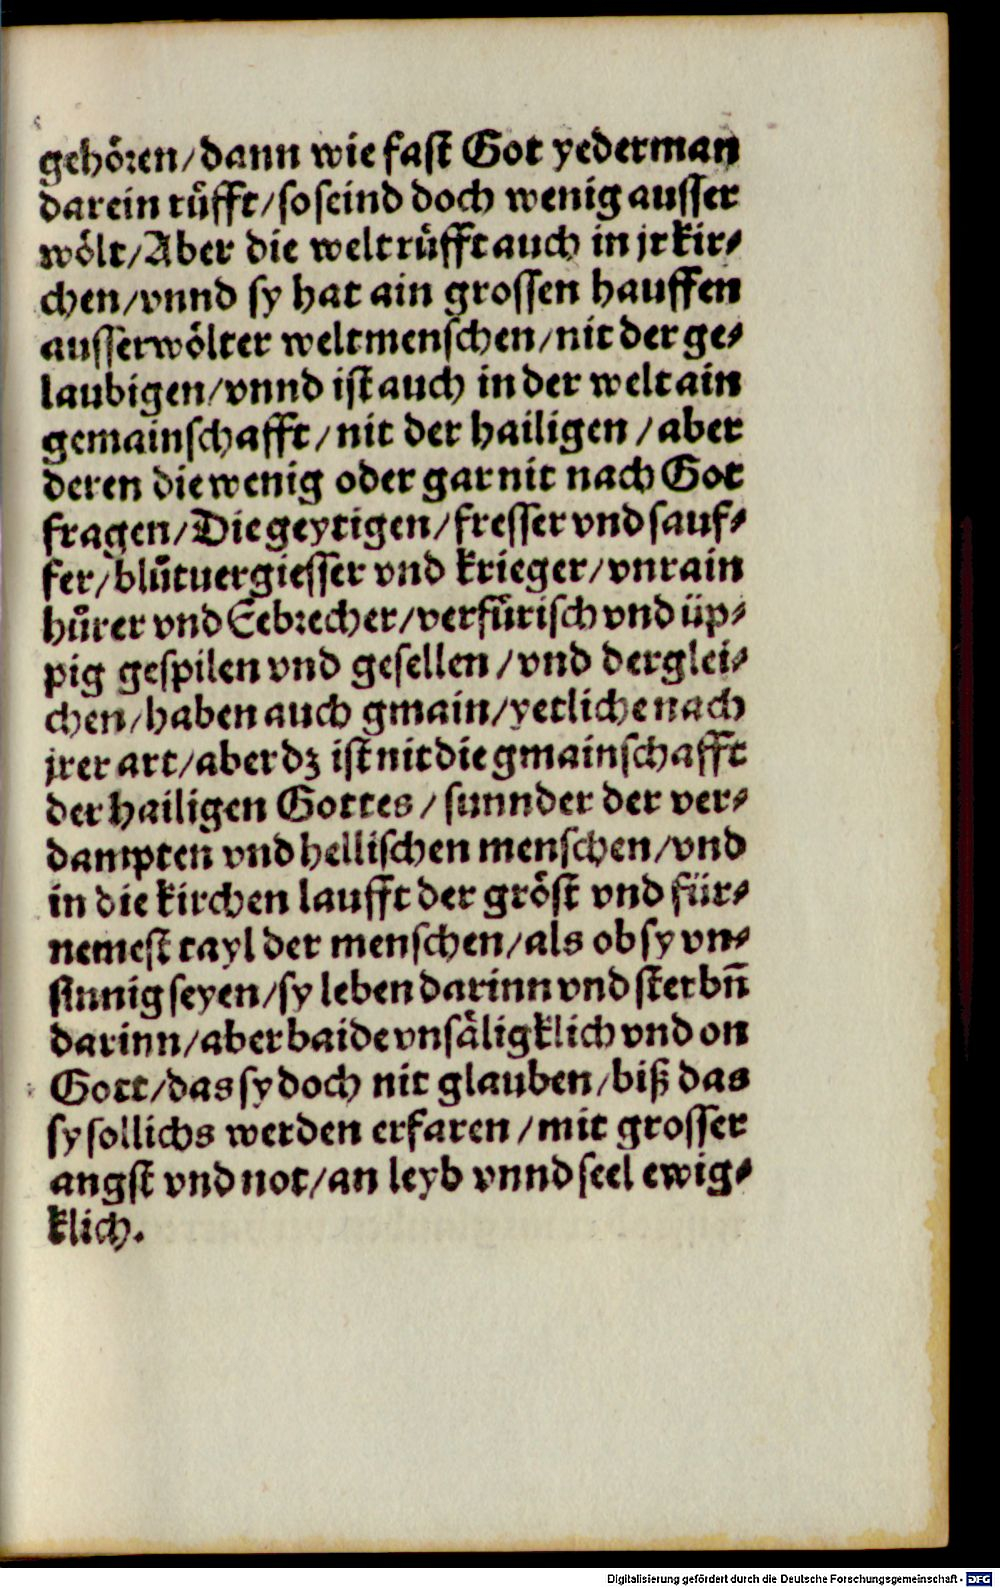 gehören/dann wie fast Got yederman
darein rüfft/so seind doch wenig ausser
wölt/Aber die welt rüfft auch in jr kir⸗
chen/vnnd sy hat ain grossen hauffen
ausserwölter weltmenschen/nit der ge⸗
laubigen/vnnd ist auch in der welt ain
gemainschafft/nit der hailigen/aber
deren die wenig oder gar nit nach Got
fragen/Die geytigen/fresser vnd sauf⸗
fer/blůtuergiesser vnd krieger/vnrain
hůrer vnd Eebrecher/verfürisch vnd üp⸗
pig gespilen vnd gesellen/vnd derglei⸗
chen/haben auch gmain/yetliche nach
jrer art/aber dz ist nit die gmainschafft
der hailigen Gottes/sunnder der ver⸗
dampten vnd hellischen menschen/vnd
in die kirchen laufft der gröst vnd für⸗
nemest tayl der menschen/als ob sy vn⸗
sinnig seyen/sy leben darinn vnd sterbn̄
darinn/aber baide vnsäligklich vnd on
Gott/das sy doch nit glauben/biß das
sy sollichs werden erfaren/mit grosser
angst vnd not/an leyb vnnd seel ewig⸗
klich.
Digitalisierung gefördert durch die Deutsche Forschungsgemeinschaft - DFG